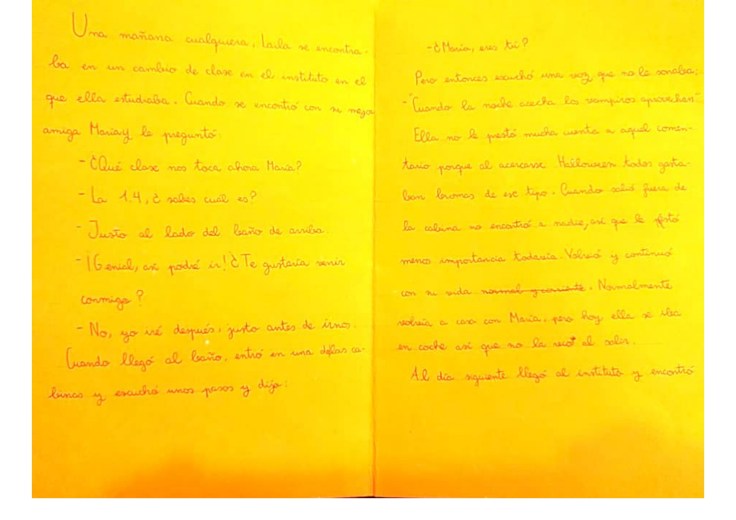 Una mañana cualquiera, Laila se encontra-
ba en un cambio de clase en el instituto en el
que ella estudiaba. Cuando se encontró con su mejor
amiga María y le preguntó:
- ¿Qué clase nos toca ahora María?
- La 1.4, ¿ sabes cuál es?
- Justo al lado del baño de arriba.
- ¡Genial, así podré ir! ¿Te gustaría venir
conmigo?
- No, yo iré después, justo antes de irnos.
Cuando llegó al baño, entró en una de las ca-
binas y escuchó unos pasos y dijo:
- ¿María, eres tú?
Pero entonces escuchó una voz que no le sonaba:
- "Cuando la noche acecha los vampiros aprovechan".
Ella no le prestó mucha cuenta a aquel comen-
tario porque al acercarse Halloween todos gasta-
ban bromas de ese tipo. Cuando salió fuera de
la cabina no encontró a nadie, así que le prestó
menos importancia todavía. Volvió y continuó
con su vida normal y corriente. Normalmente
volvería a casa con María, pero hoy ella se iba
en coche así que no la veió al salir.
Al día siguiente llegó al instituto y encontró